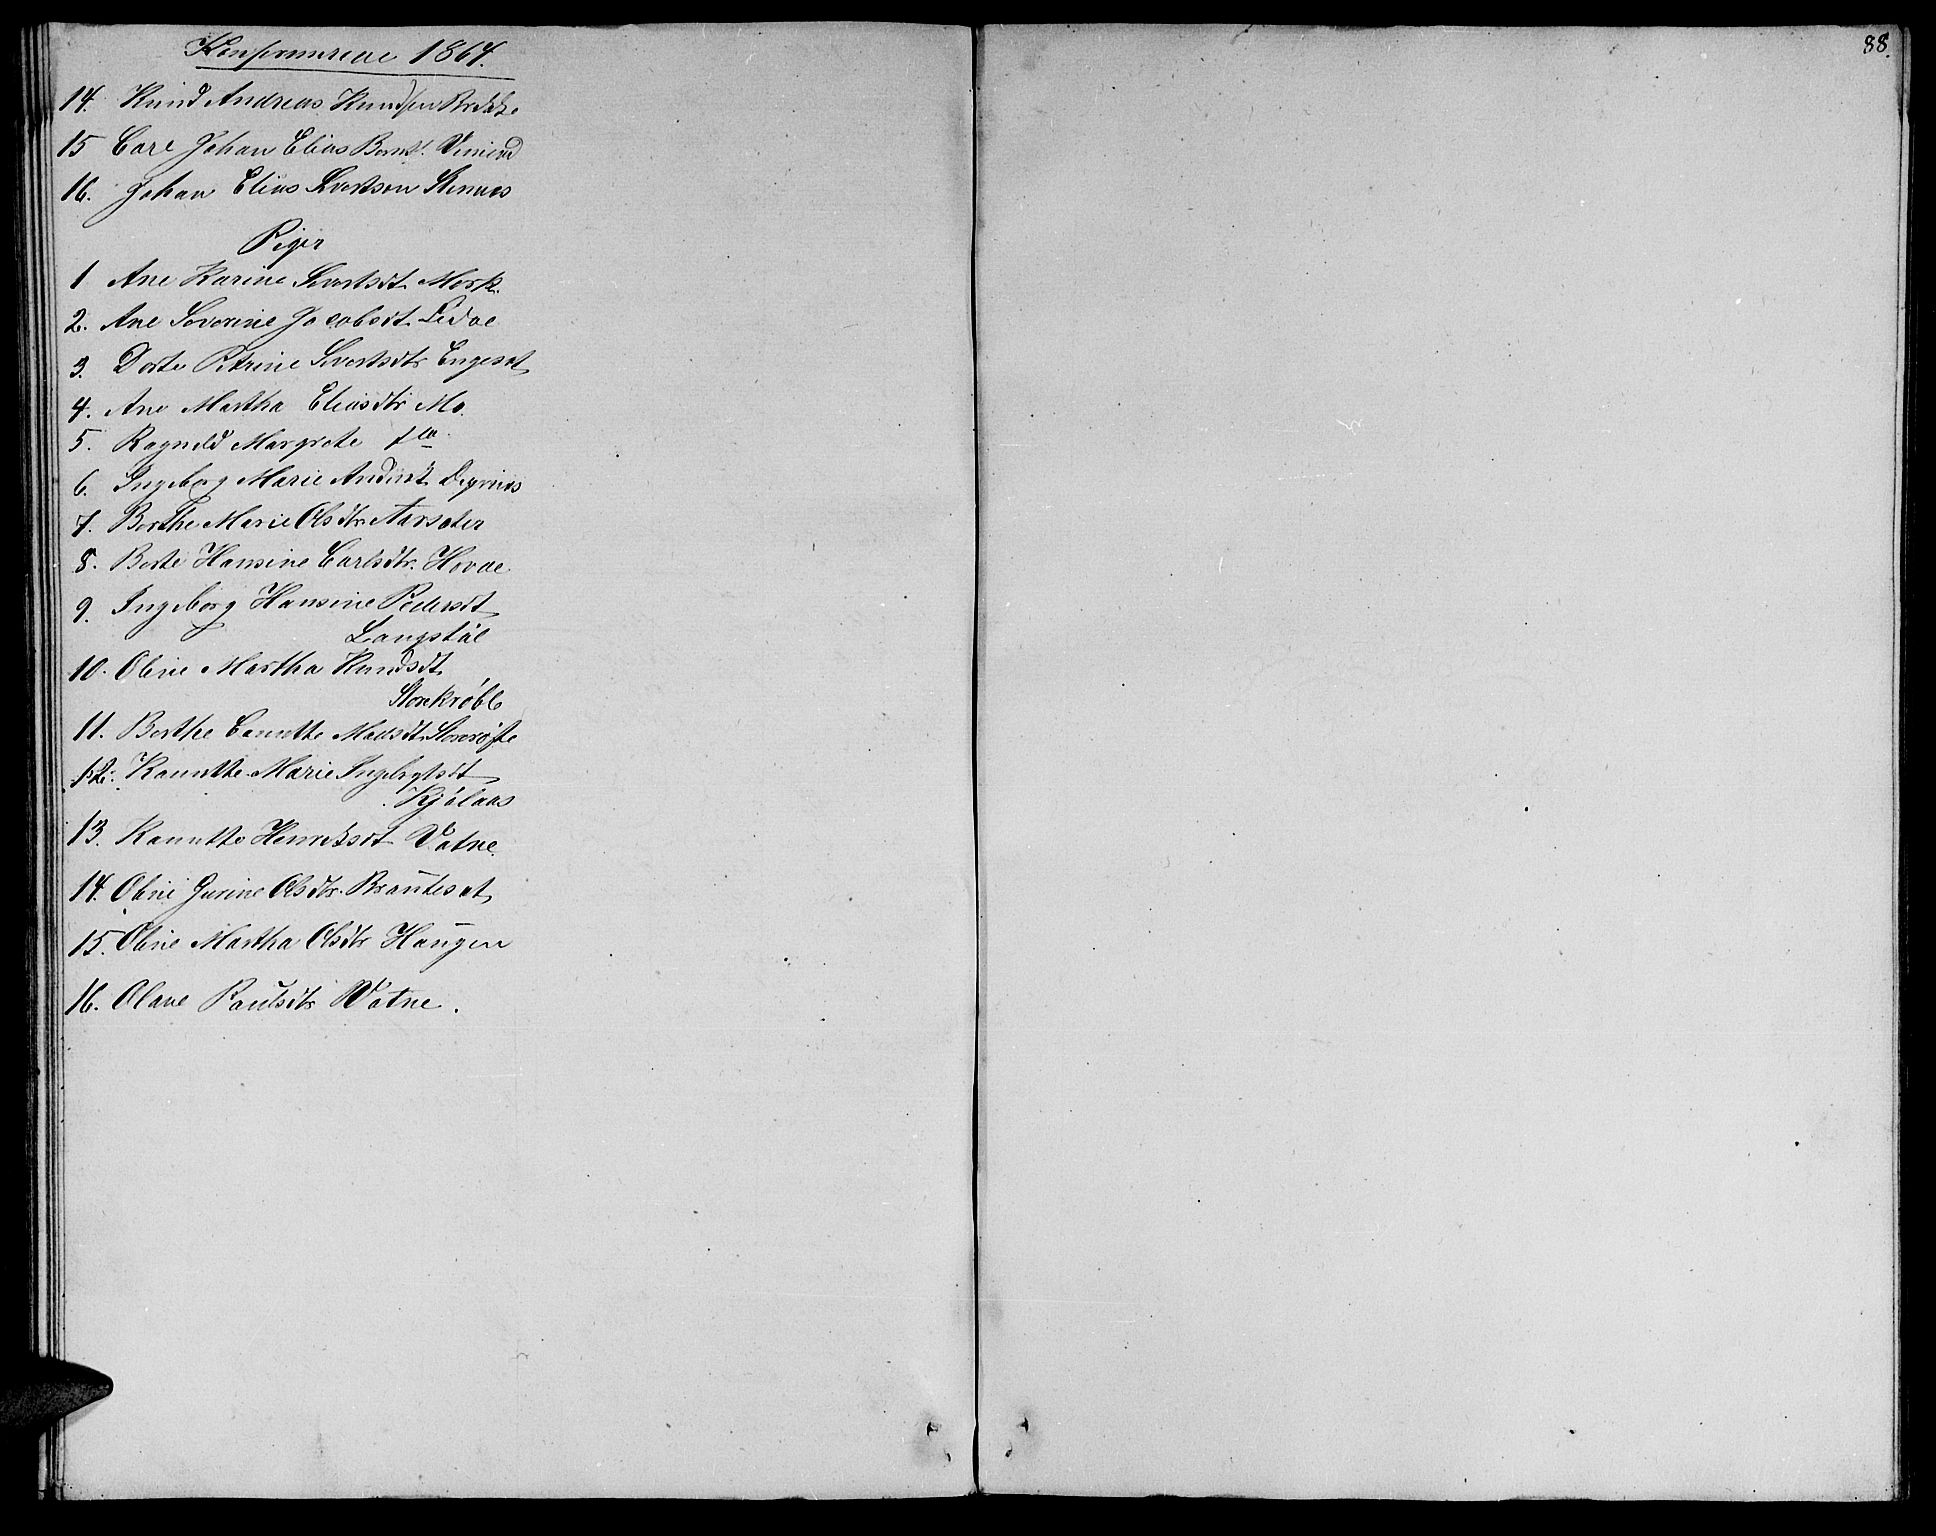 Konfirmerede 1864.
88.
14. Knud Andreas Knudsen Brekke
15 Carl Johan Elias Bernts.
16. Johan Elias Sivertsen Stennes
Piger
1 Ane Karine Sivertsdt. Mork.
2. Ane Severine Jacobsdt. Lidal
3. Dorte Petrine Sivertsdtr Engeset
4. Ane Martha Eliasdtr Mo.
5. Ragnild Margrete
6. Ingeborg Marie Digernes
7. Berthe Marie Olsdtr. Aarseter
8. Berte Hansine Carlsdtr. Hovde
9. Ingeborg Hansine Pedersdt
Langstøl
10. Oline Martha Knudsdt.
11. Berthe Canutte Madsdt.
12. Kanutte Marie Ingebrgtsdt
Kjølaas
13. Kanutte Henriksdt Vatne.
14. Oline Gurine Olsdtr. Brauteset
15. Oline Martha Olsdtr Haugen
16. Olave Paulsdtr Vatne.